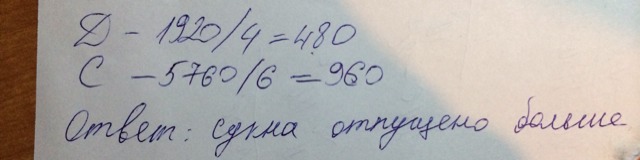 Д – 1920/4 = 480
С – 5760/6 = 960
Ответ: сукна отпущено больше